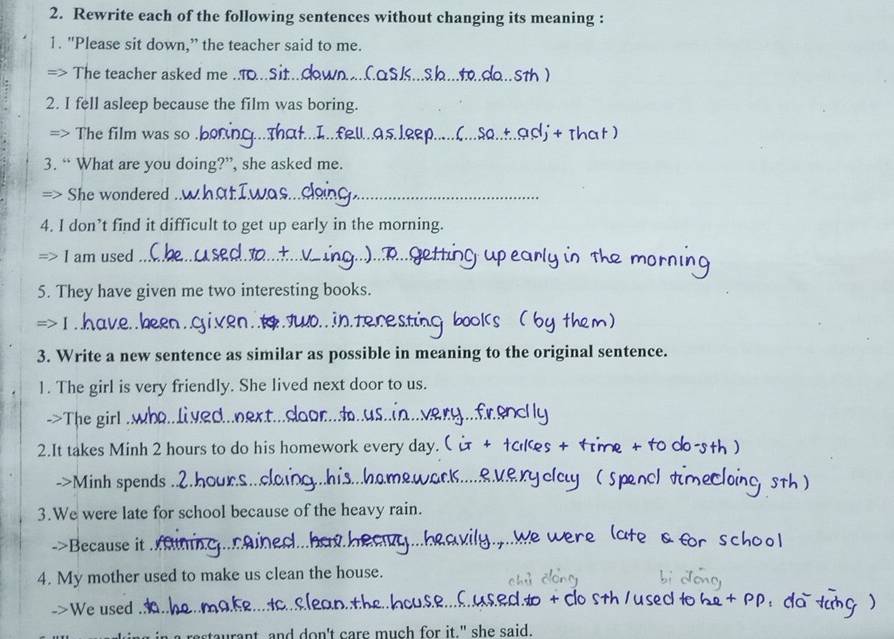 2. Rewrite each of the following sentences without changing its meaning :
1. "Please sit down,” the teacher said to me.
=> The teacher asked me ..to...sit...down...(ask...sb...to..do...sth )
2. I fell asleep because the film was boring.
=> The film was so .boring...that..I...fell..asleep.....(...so..+..adj + that )
3. “ What are you doing?”, she asked me.
=> She wondered ..what I was...doing..
4. I don’t find it difficult to get up early in the morning.
=> I am used ...(be...used to...+...v_ing..)..to...getting up early in the morning
5. They have given me two interesting books.
=> I .have..been..given...two..interesting books (by them)
3. Write a new sentence as similar as possible in meaning to the original sentence.
1. The girl is very friendly. She lived next door to us.
->The girl .who..lived..next...door...to..us..in...very...frendly
2.It takes Minh 2 hours to do his homework every day. ( it + takes + time + to do-sth )
->Minh spends ..2.hours...doing...his...homework....everyday (spend time doing sth )
3.We were late for school because of the heavy rain.
->Because it ...rained...heavily.,..we were late for school
4. My mother used to make us clean the house.
chủ động bị động
->We used ..to..be..make...to..clean..the..house...(.used.to + do sth / used to be + PP: đã từng )
restaurant, and don't care much for it." she said.